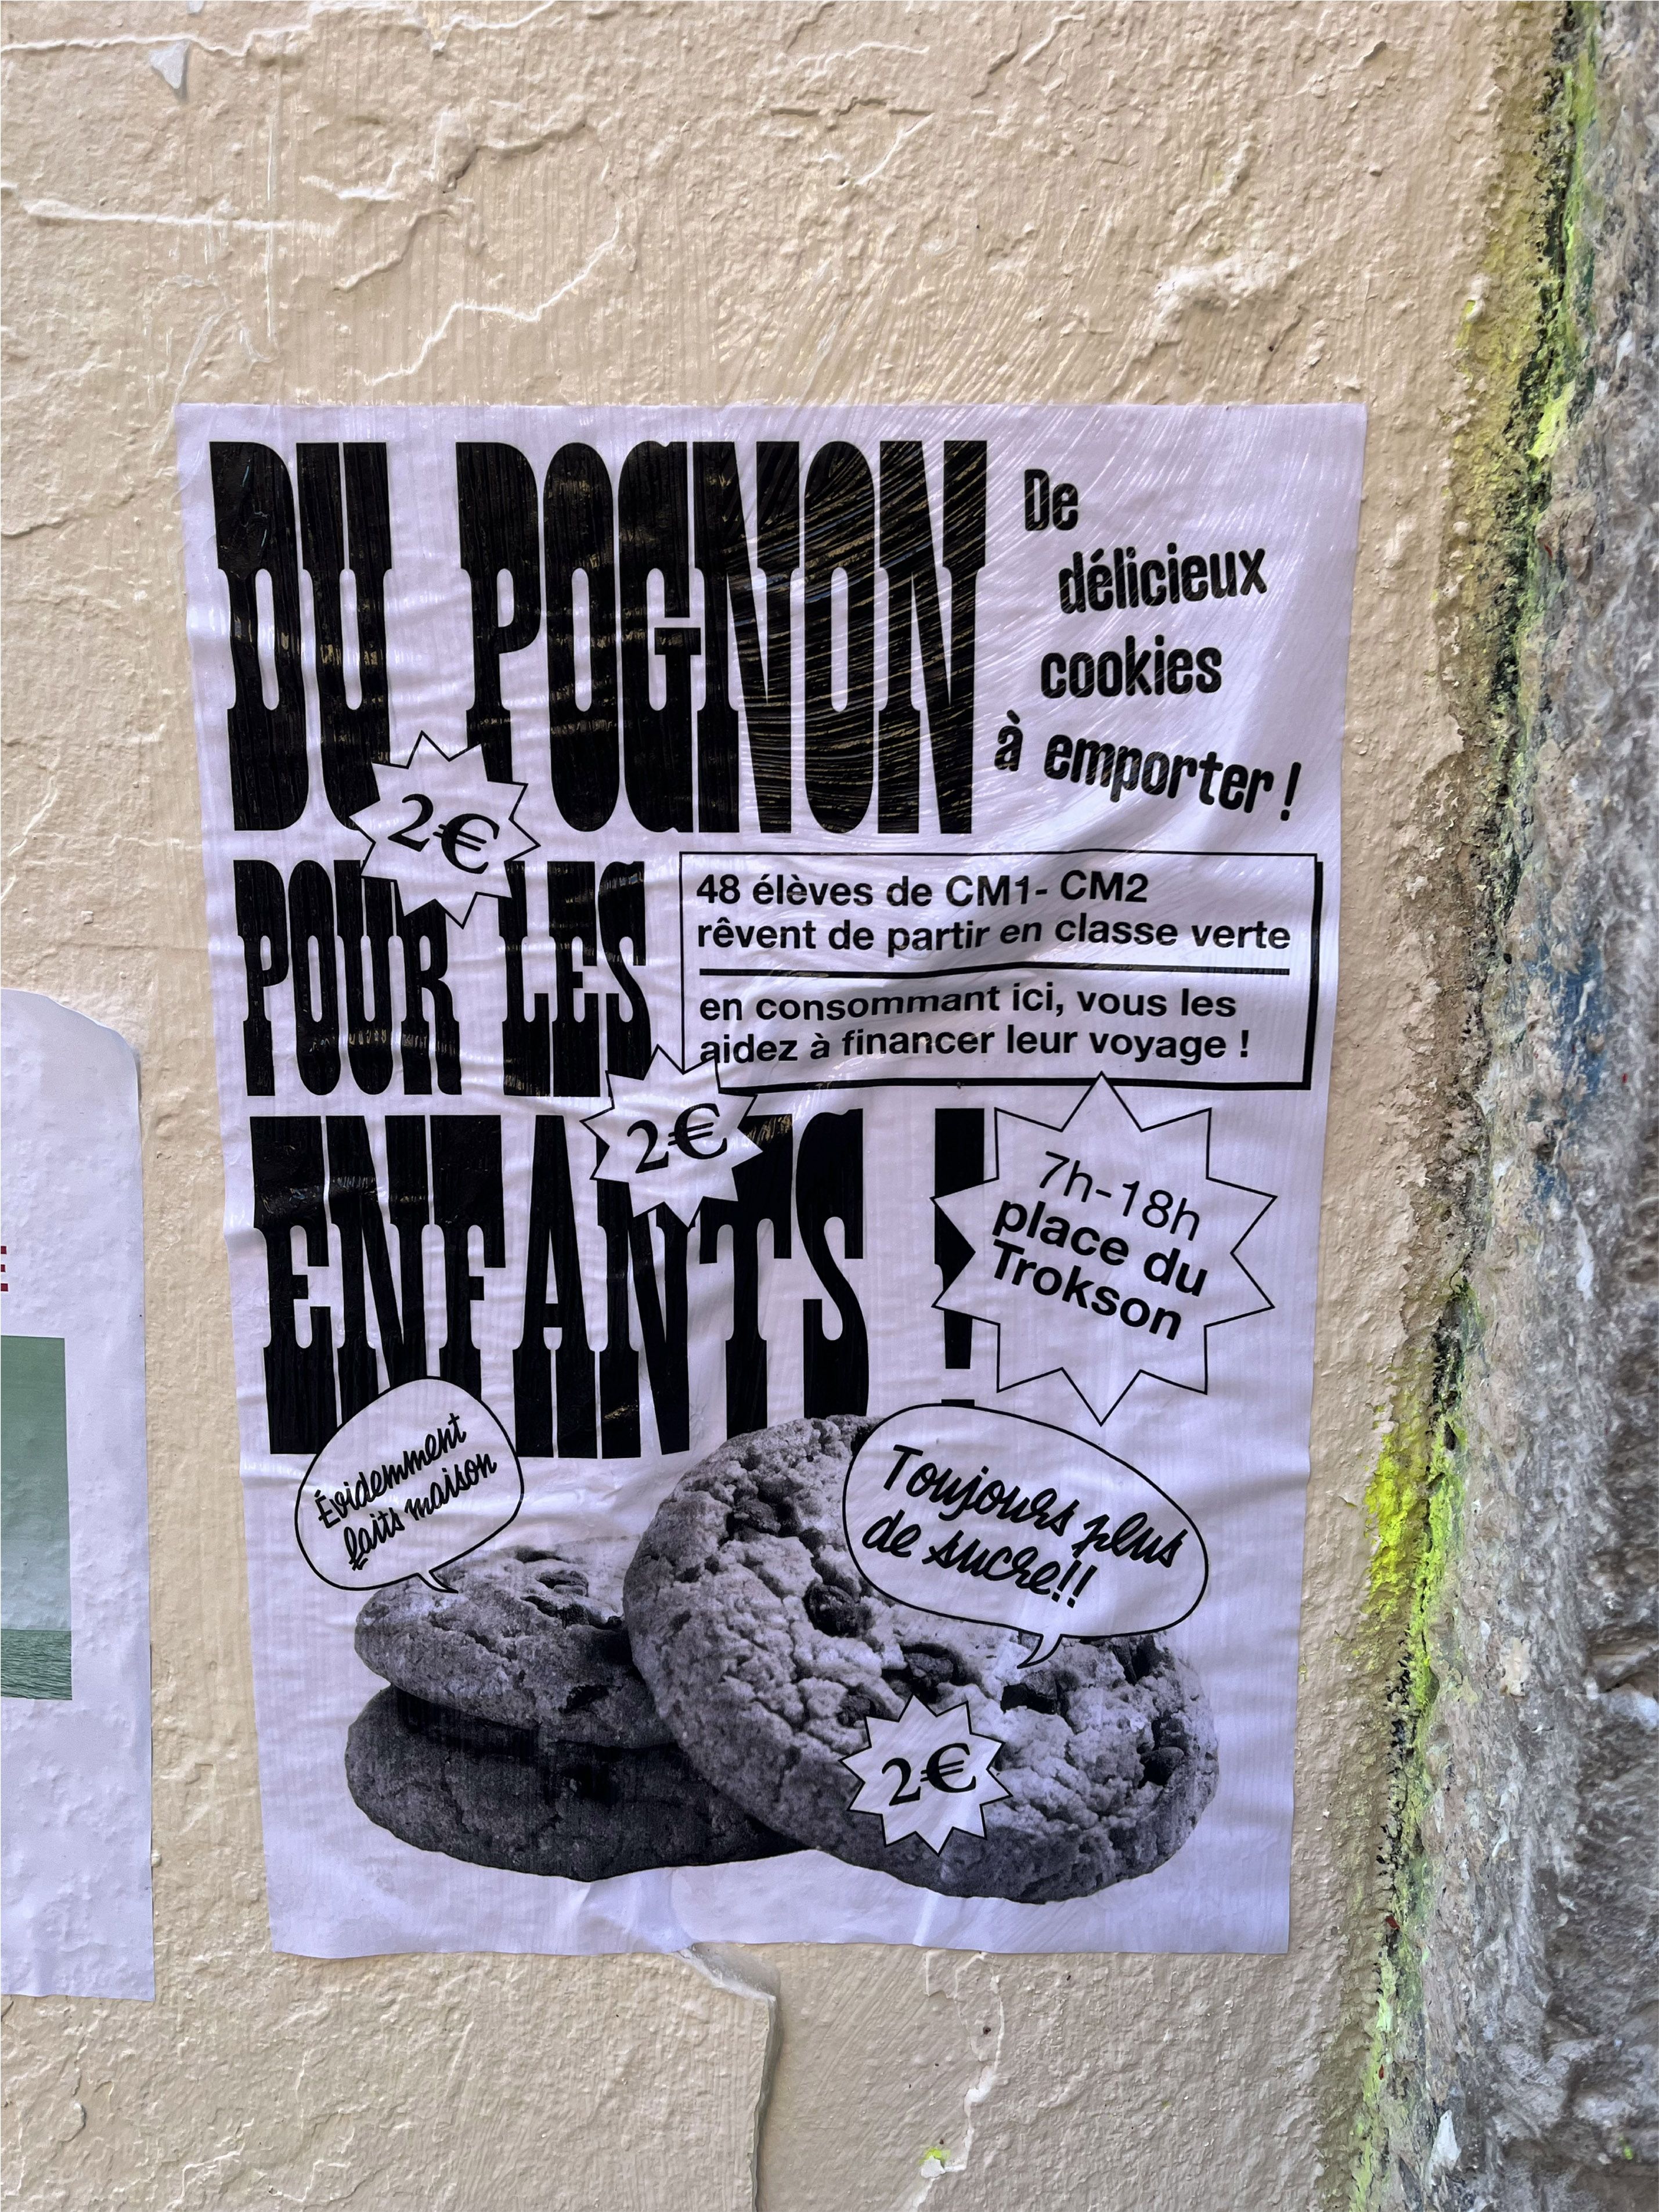 DU POGNON
De
délicieux
cookies
à emporter !
2€
POUR LES
48 élèves de CM1- CM2
rêvent de partir en classe verte
en consommant ici, vous les
aidez à financer leur voyage !
2€
ENFANTS !
7h-18h
place du
Trokson
Évidemment
faits maison
Toujours plus
de sucre!!
2€